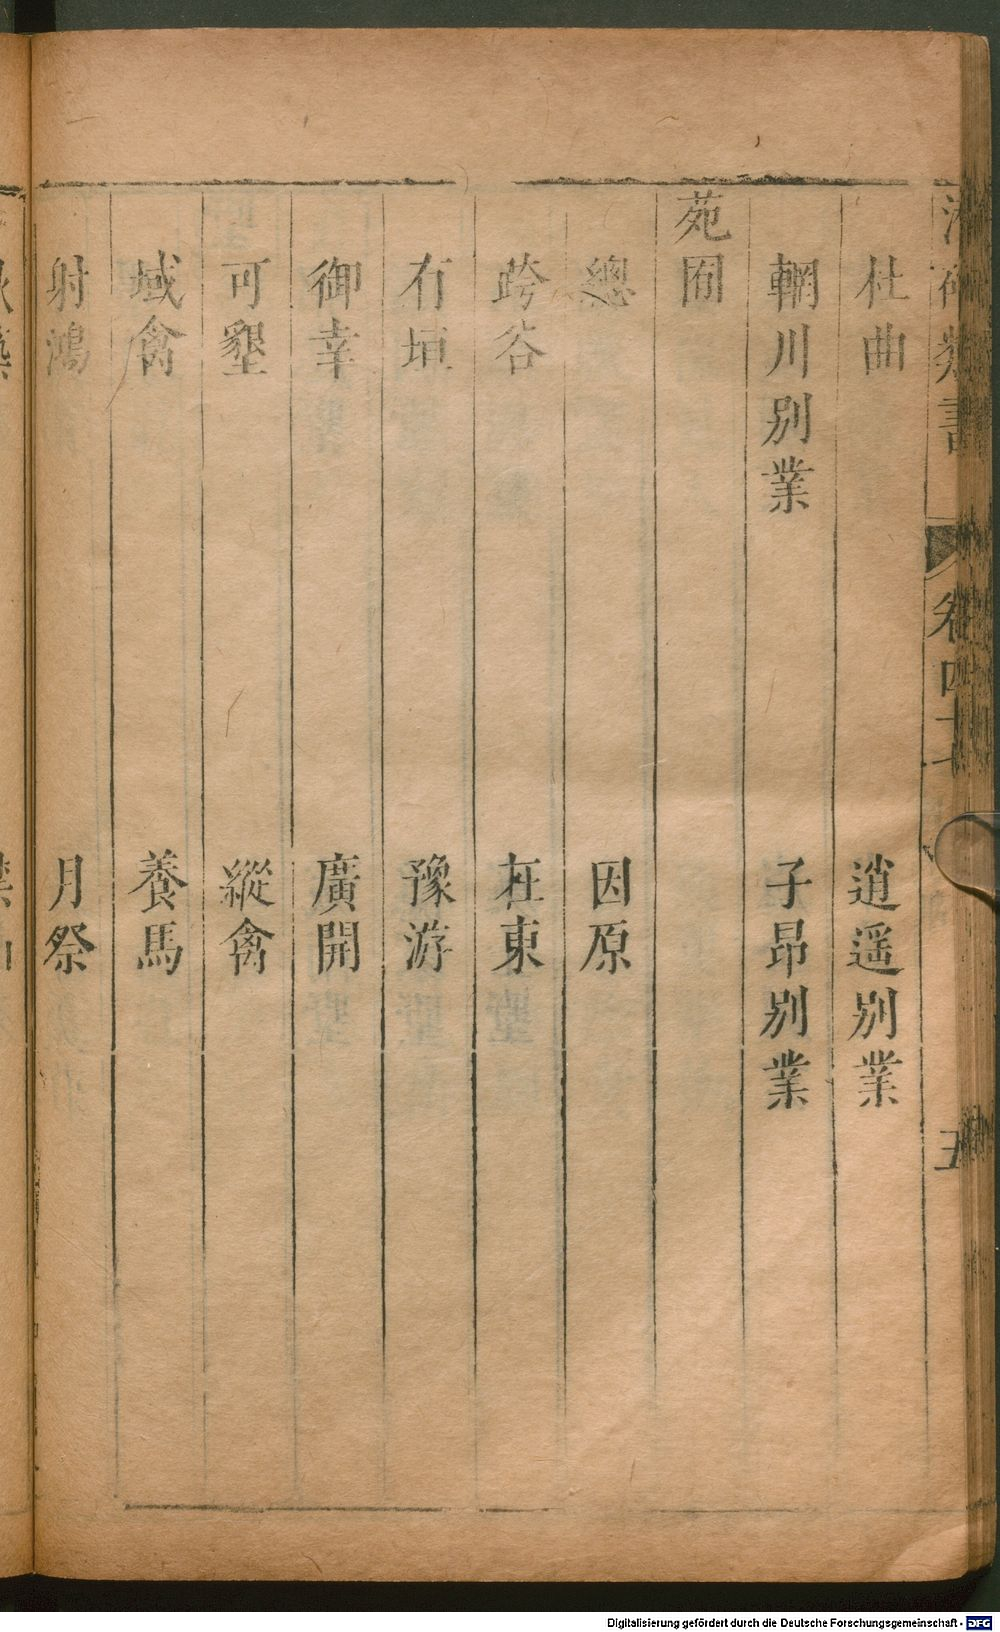 卷四十
五
杜曲 逍遥別業
輞川別業 子昂別業
苑囿
總 因原
跨谷 在東
有垣 豫游
御幸 廣開
可墾 縱禽
域禽 養馬
射鴻 月祭
Digitalisierung gefördert durch die Deutsche Forschungsgemeinschaft - DFG